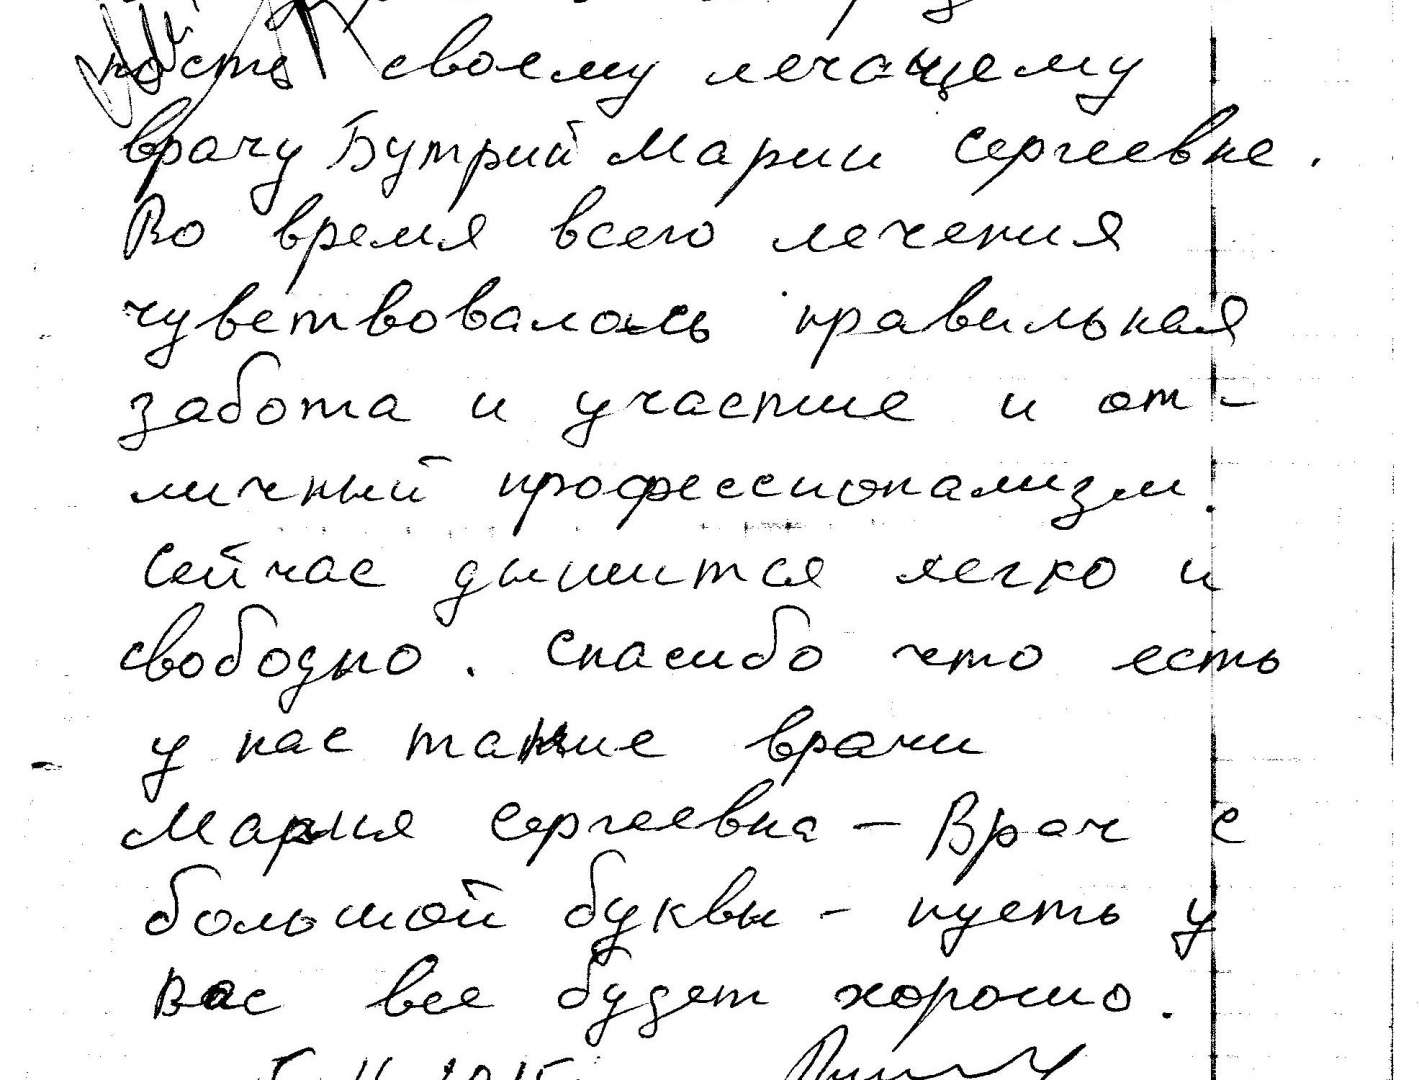 ность своему лечащему
врачу Бутрий Марии Сергеевне.
Во время всего лечения
чувствовалась правильная
забота и участие и от-
личный профессионализм.
Сейчас дышится легко и
свободно. Спасибо что есть
у нас такие врачи
Мария Сергеевна – Врач с
большой буквы – пусть у
Вас все будет хорошо.